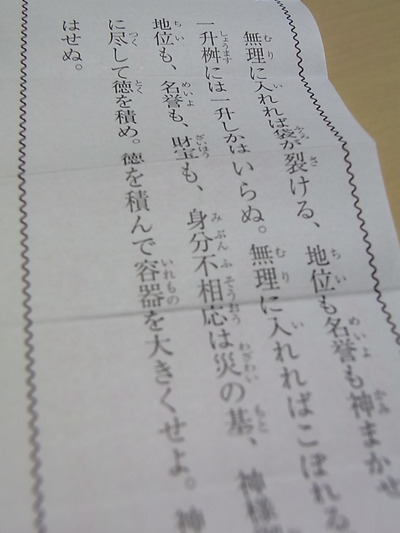 無理に入れれば袋が裂ける、地位も名誉も神まかせ
一升桝には一升しかはいらぬ。無理に入れればこぼれる
地位も、名誉も、財宝も、身分不相応は災の基、神様
に尽して徳を積め。徳を積んで容器を大きくせよ。神
はせぬ。